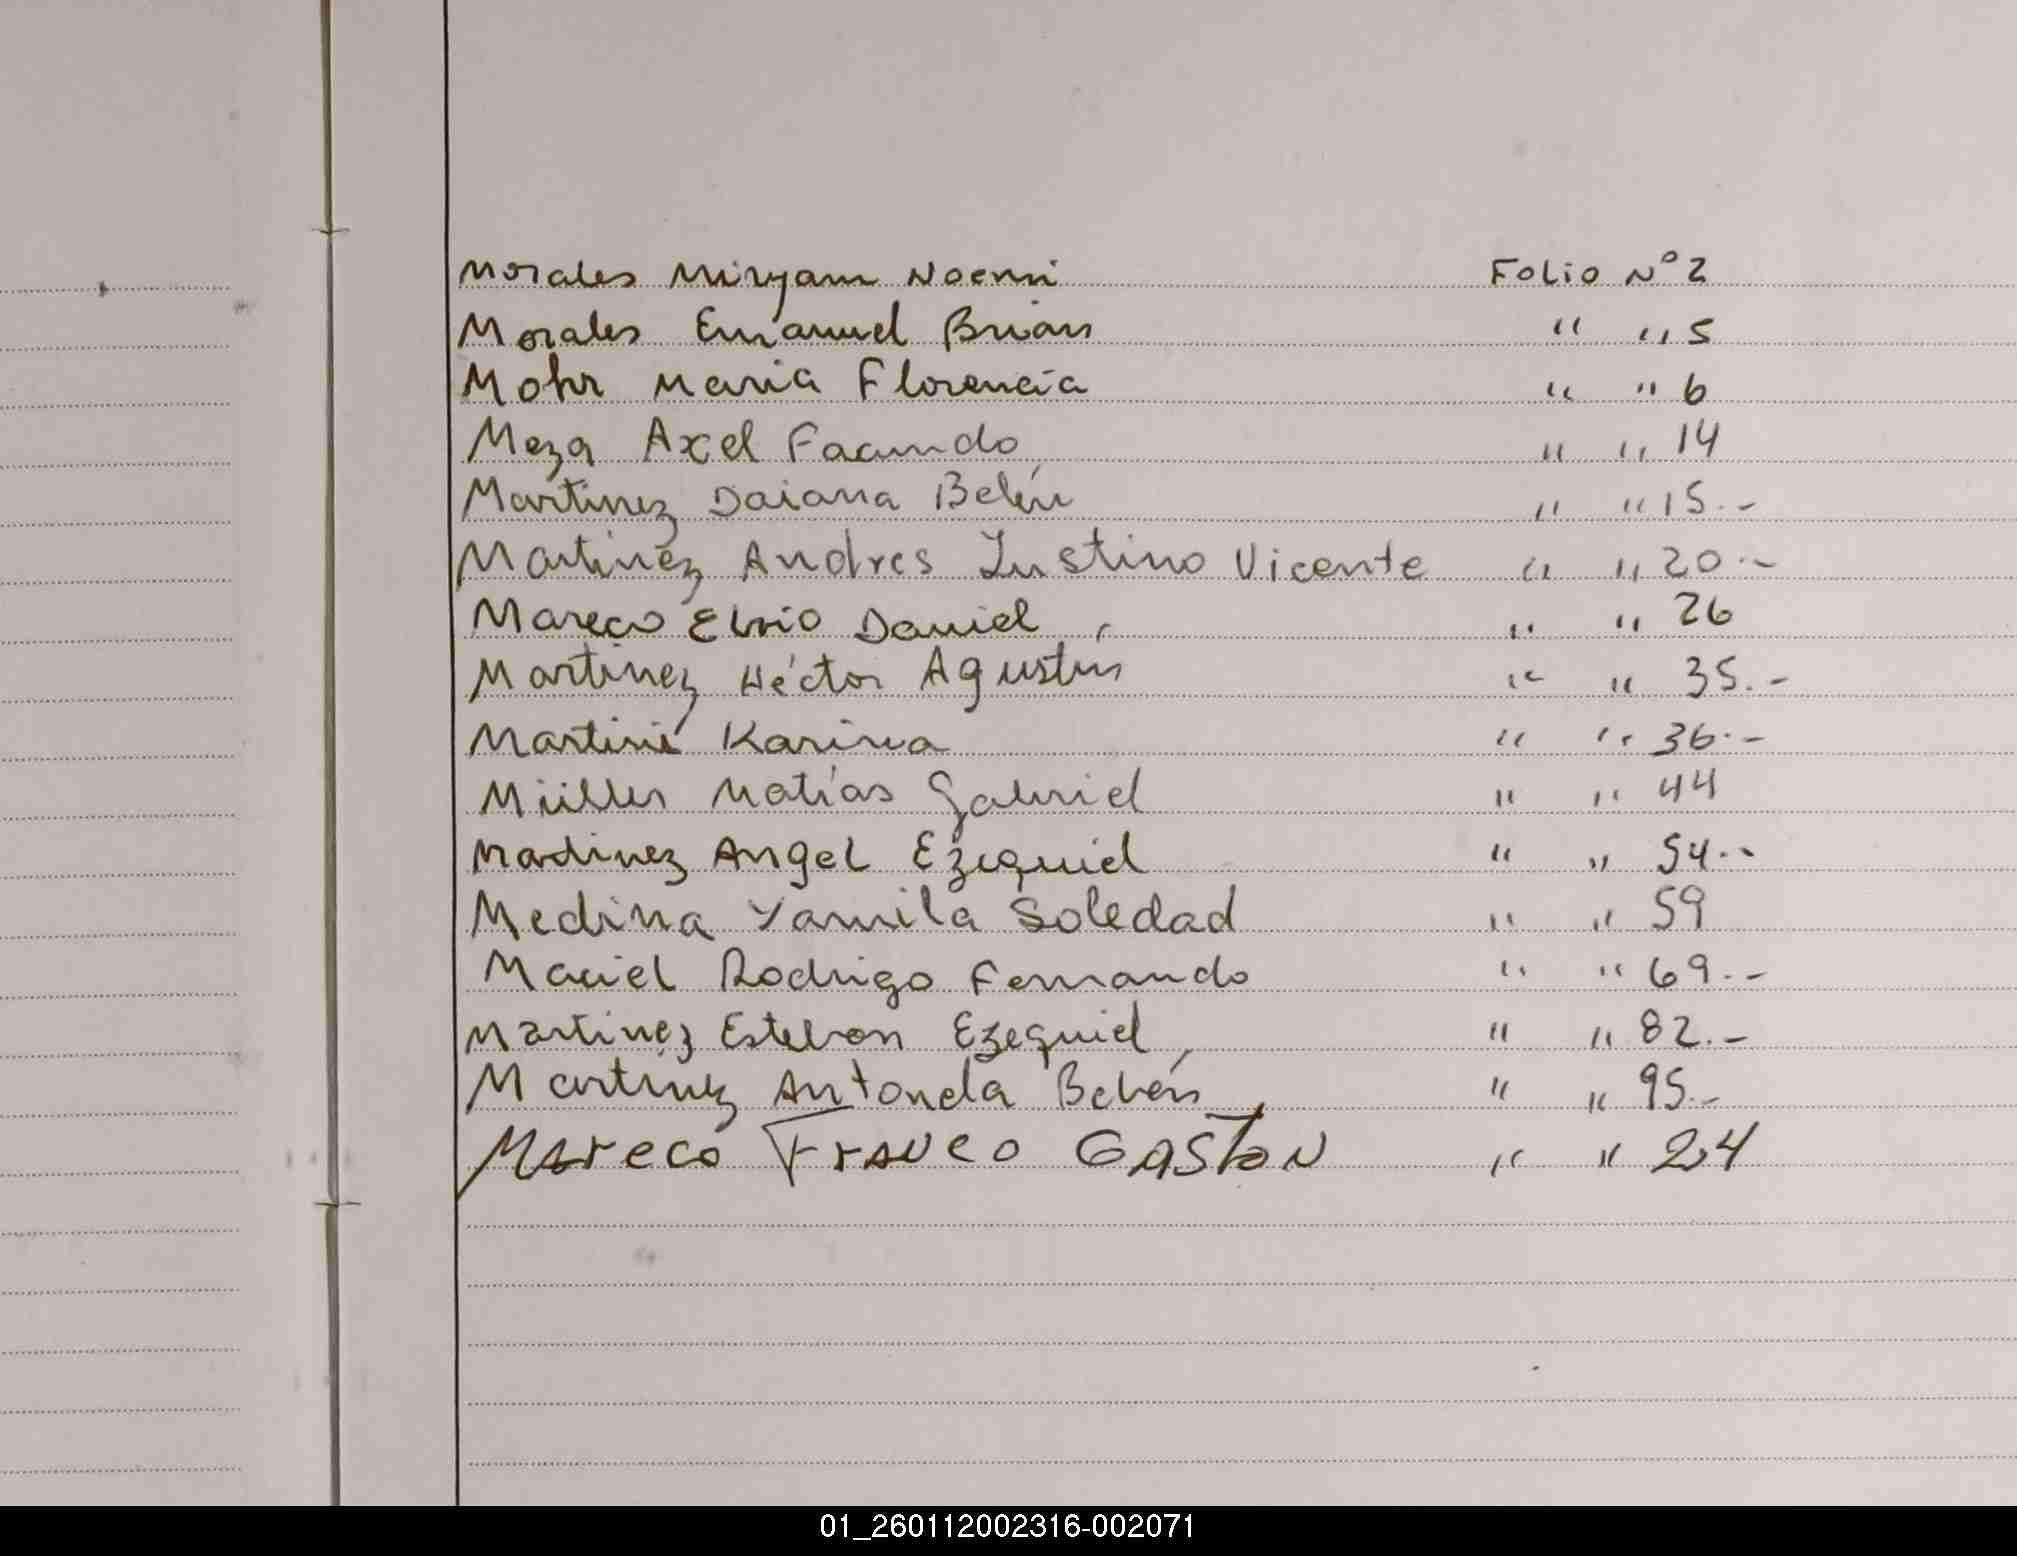 Morales Miryam Noemi Folio N° 2
Morales Emanuel Brian " " 5
Mohr Maria Florencia " " 6
Meza Axel Facundo " " 14
Martinez Daiana Belén " " 15.-
Martinez Andres Justino Vicente " " 20.-
Mareco Elvio Daniel " " 26
Martinez Héctor Agustín " " 35.-
Martini Karina " " 36.-
Müller Matías Gabriel " " 44
Martinez Angel Ezequiel " " 54.-
Medina Yamila Soledad " " 59
Maciel Rodrigo Fernando " " 69.-
Martinez Esteban Ezequiel " " 82.-
Martinez Antonela Belén " " 95.-
Mareco Franco Gaston " " 24
01_260112002316-002071